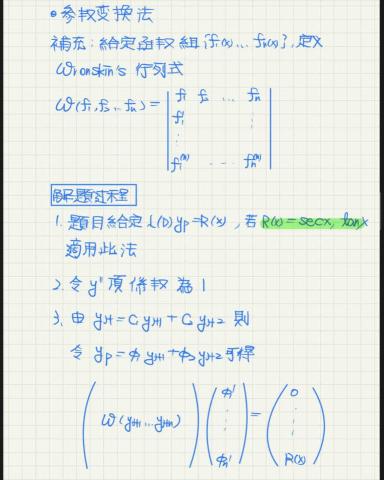 • 參數變換法
補充：給定函數組{f₁(x)...fₙ(x)}, 定義
Wronskin's 行列式
W(f₁,f₂...fₙ) = | f₁ f₂ ... fₙ |
f₁' ⋮
⋮ ⋮
f₁⁽ⁿ⁾ ... fₙ⁽ⁿ⁾
解題过程
1. 題目給定 L(D)yp=R(x), 若 R(x)=secx, tanx
適用此法
2. 令 y" 項係數為 1
3. 由 yH = C₁yH1 + C₂yH2 則
令 yp = ϕ₁yH1 + ϕ₂yH2 可得
( W(yH1...yHn) ) ( ϕ' ⋮ ϕn' ) = ( 0 ⋮ R(x) )